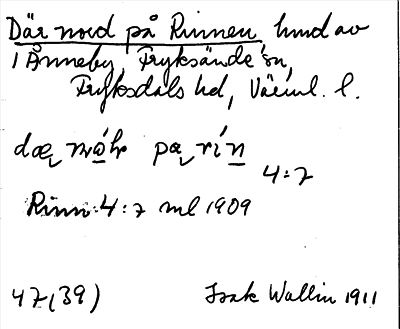 Där nord på Rinnen, hmd av
1 Ånneby, Fryksände sn,
Fryksdals hd, Värml. l.
dæ, nǻr pa, rín
4:7
Rinn: 4:7 ml 1909
47(39) Isak Wallin 1911